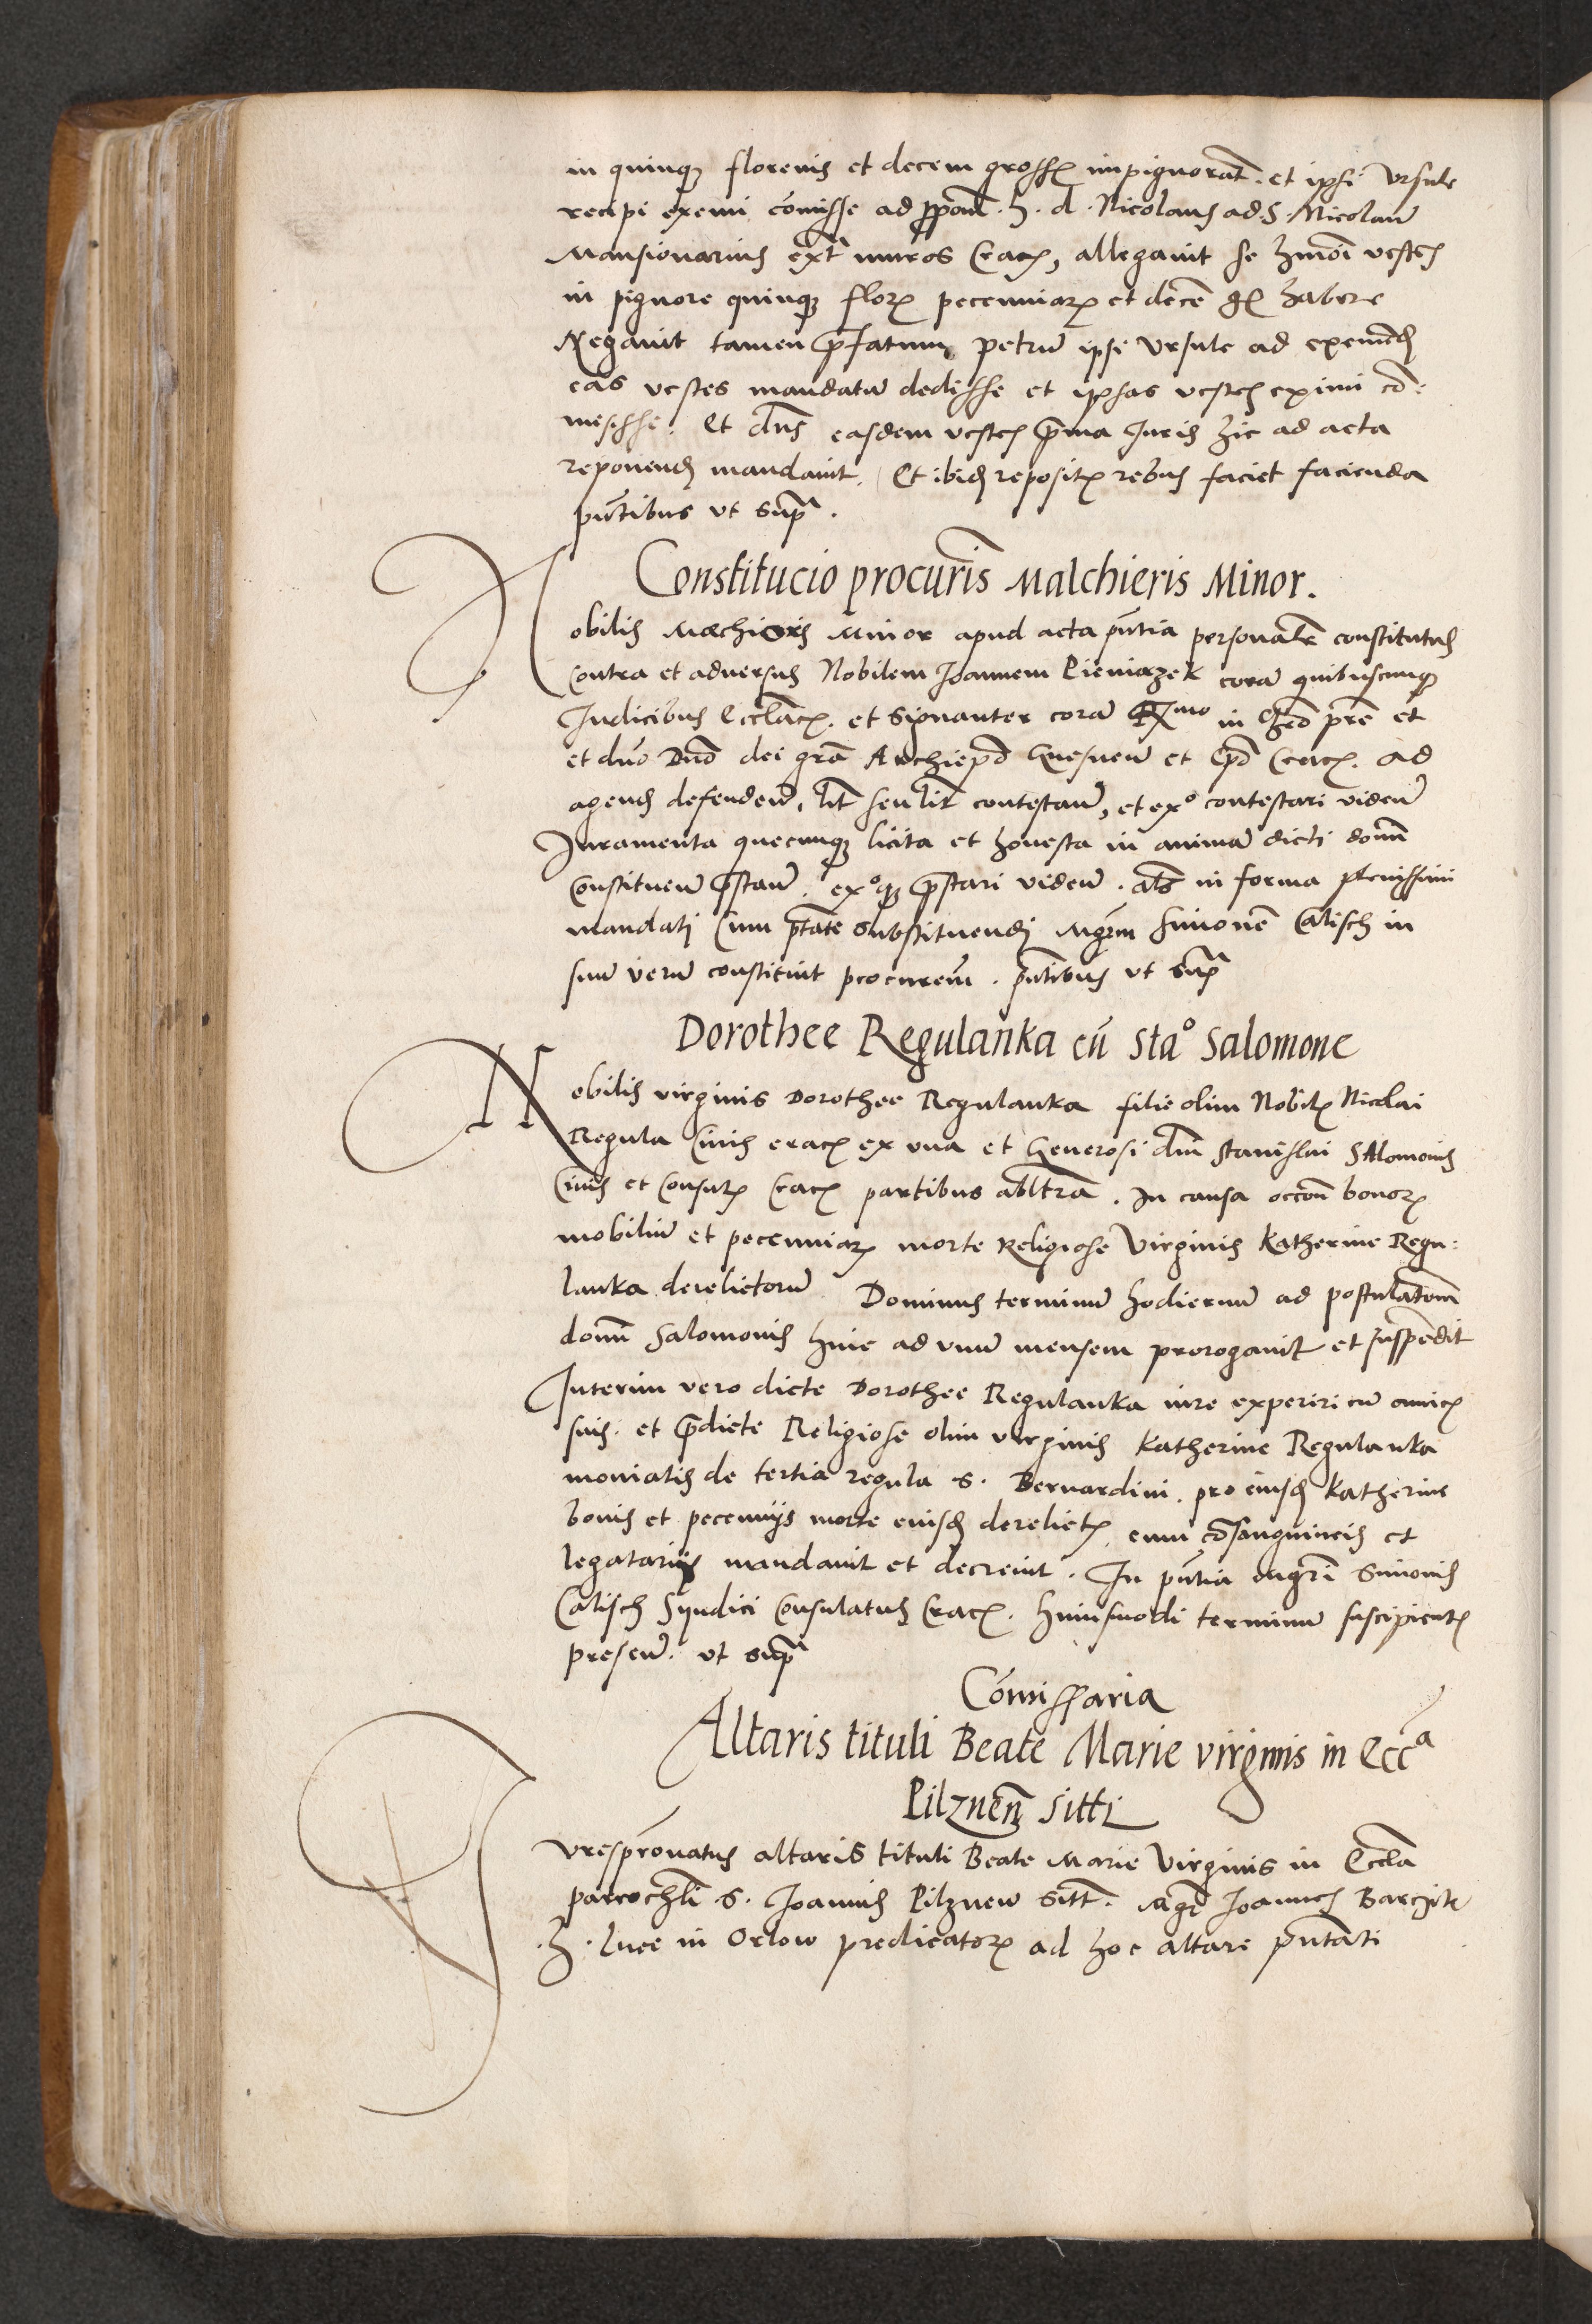 in quinq3 florenis et decem grossis impignorat. et ipsi Vrsule
recipi exemi cōmisse ad h. d. Nicolaus ad S. Nicolaū
Mansionarius extra muros Crac, allegavit se hmōi vestes
in pignore quinq3 flor pecenniar et decē gr habere
Negauit tamen prefatum petrū ipsi Vrsule ad eximēd
eas vestes mandatū dedisse et ipsas vestes eximi cō:
mesisse. Et dns easdem vestes iuris hic ad acta
reponend mandauit. Et ibid reposit rebus faciet facienda
pntibus vt supra.
Constitucio procuris Malchieris Minor.
Nobilis Melchioris Minor apud acta pntia personalr constitutus
contra et aduersus Nobilem Joannem Pieniazek corā quibuscunq3
Judicibus Ecclac. et signanter corā Rmo in Chro pre et
et dno Dno dei gra Archiepo Gnesnen et Epo Crac. ad
agend defenden, lit seu lir contestan, et exo contestari viden
Juramenta quecunq3 licita et honesta in animā dicti domi
Constituen prestan. exoq3 prestari viden. als in forma plenissimi
mandati Cum ptate substituendi Mgrm Simonē Calisch in
suū verū constituit procurem. pntibus vt supra
Dorothee Regulanka cū Stao Salomone
Nobilis virginis Dorothee Regulanka filie olim Nobil Nicolai
Regula Ciuis crac ex vna et Generosi dni Stanislai Salomonis
Ciuis et Consul Crac partibus abltra. In causa occon bonor
mobiliū et pecenniar morte Religiose Virginis Katherine Regu:
lanka derelictorū Dominus terminū hodiernū ad postulatoem
domi Salomonis hinc ad vnū mensem prorogauit et suspendit
Interim vero dicte Dorothee Regulanka iure experiri cū amicis
suis. et predicte Religiose olim virginis Katherine Regulanka
monialis de tertia regula S. Bernardini. pro eiusd Katherine
bonis et pecenniis morte eiusd derelict cum cosanguineis et
legatariis mandauit et decreuit. In pntia mgri Simonis
Calisch Syndici Consulatus Crac. huiusmodi terminū suscipient
presen. vt supra
Cōmissaria
Altaris tituli Beate Marie virginis in Ecca
Pilznen siti
Juresprouatus altaris tituli Beate Marie Virginis in Eccla
parrochli S. Joannis Pilznen Sitt. Mgr Joannes
h. Luce in Orlow predicator ad hoc altare pntati